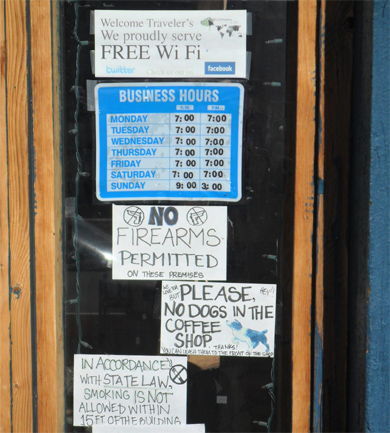 Welcome Traveler's
We proudly serve
FREE Wi Fi
twitter facebook
BUSINESS HOURS
A.M. P.M.
MONDAY 7:00 7:00
TUESDAY 7:00 7:00
WEDNESDAY 7:00 7:00
THURSDAY 7:00 7:00
FRIDAY 7:00 7:00
SATURDAY 7:00 7:00
SUNDAY 9:00 3:00
NO
FIREARMS
PERMITTED
ON THESE PREMISES
BUT PLEASE,
NO DOGS IN THE
COFFEE
SHOP.
THANKS!
YOU CAN LEASH THEM TO THE FRONT OF THE SHOP
IN ACCORDANCE
WITH STATE LAW,
SMOKING IS NOT
ALLOWED WITHIN
15 FT OF THE BUILDING